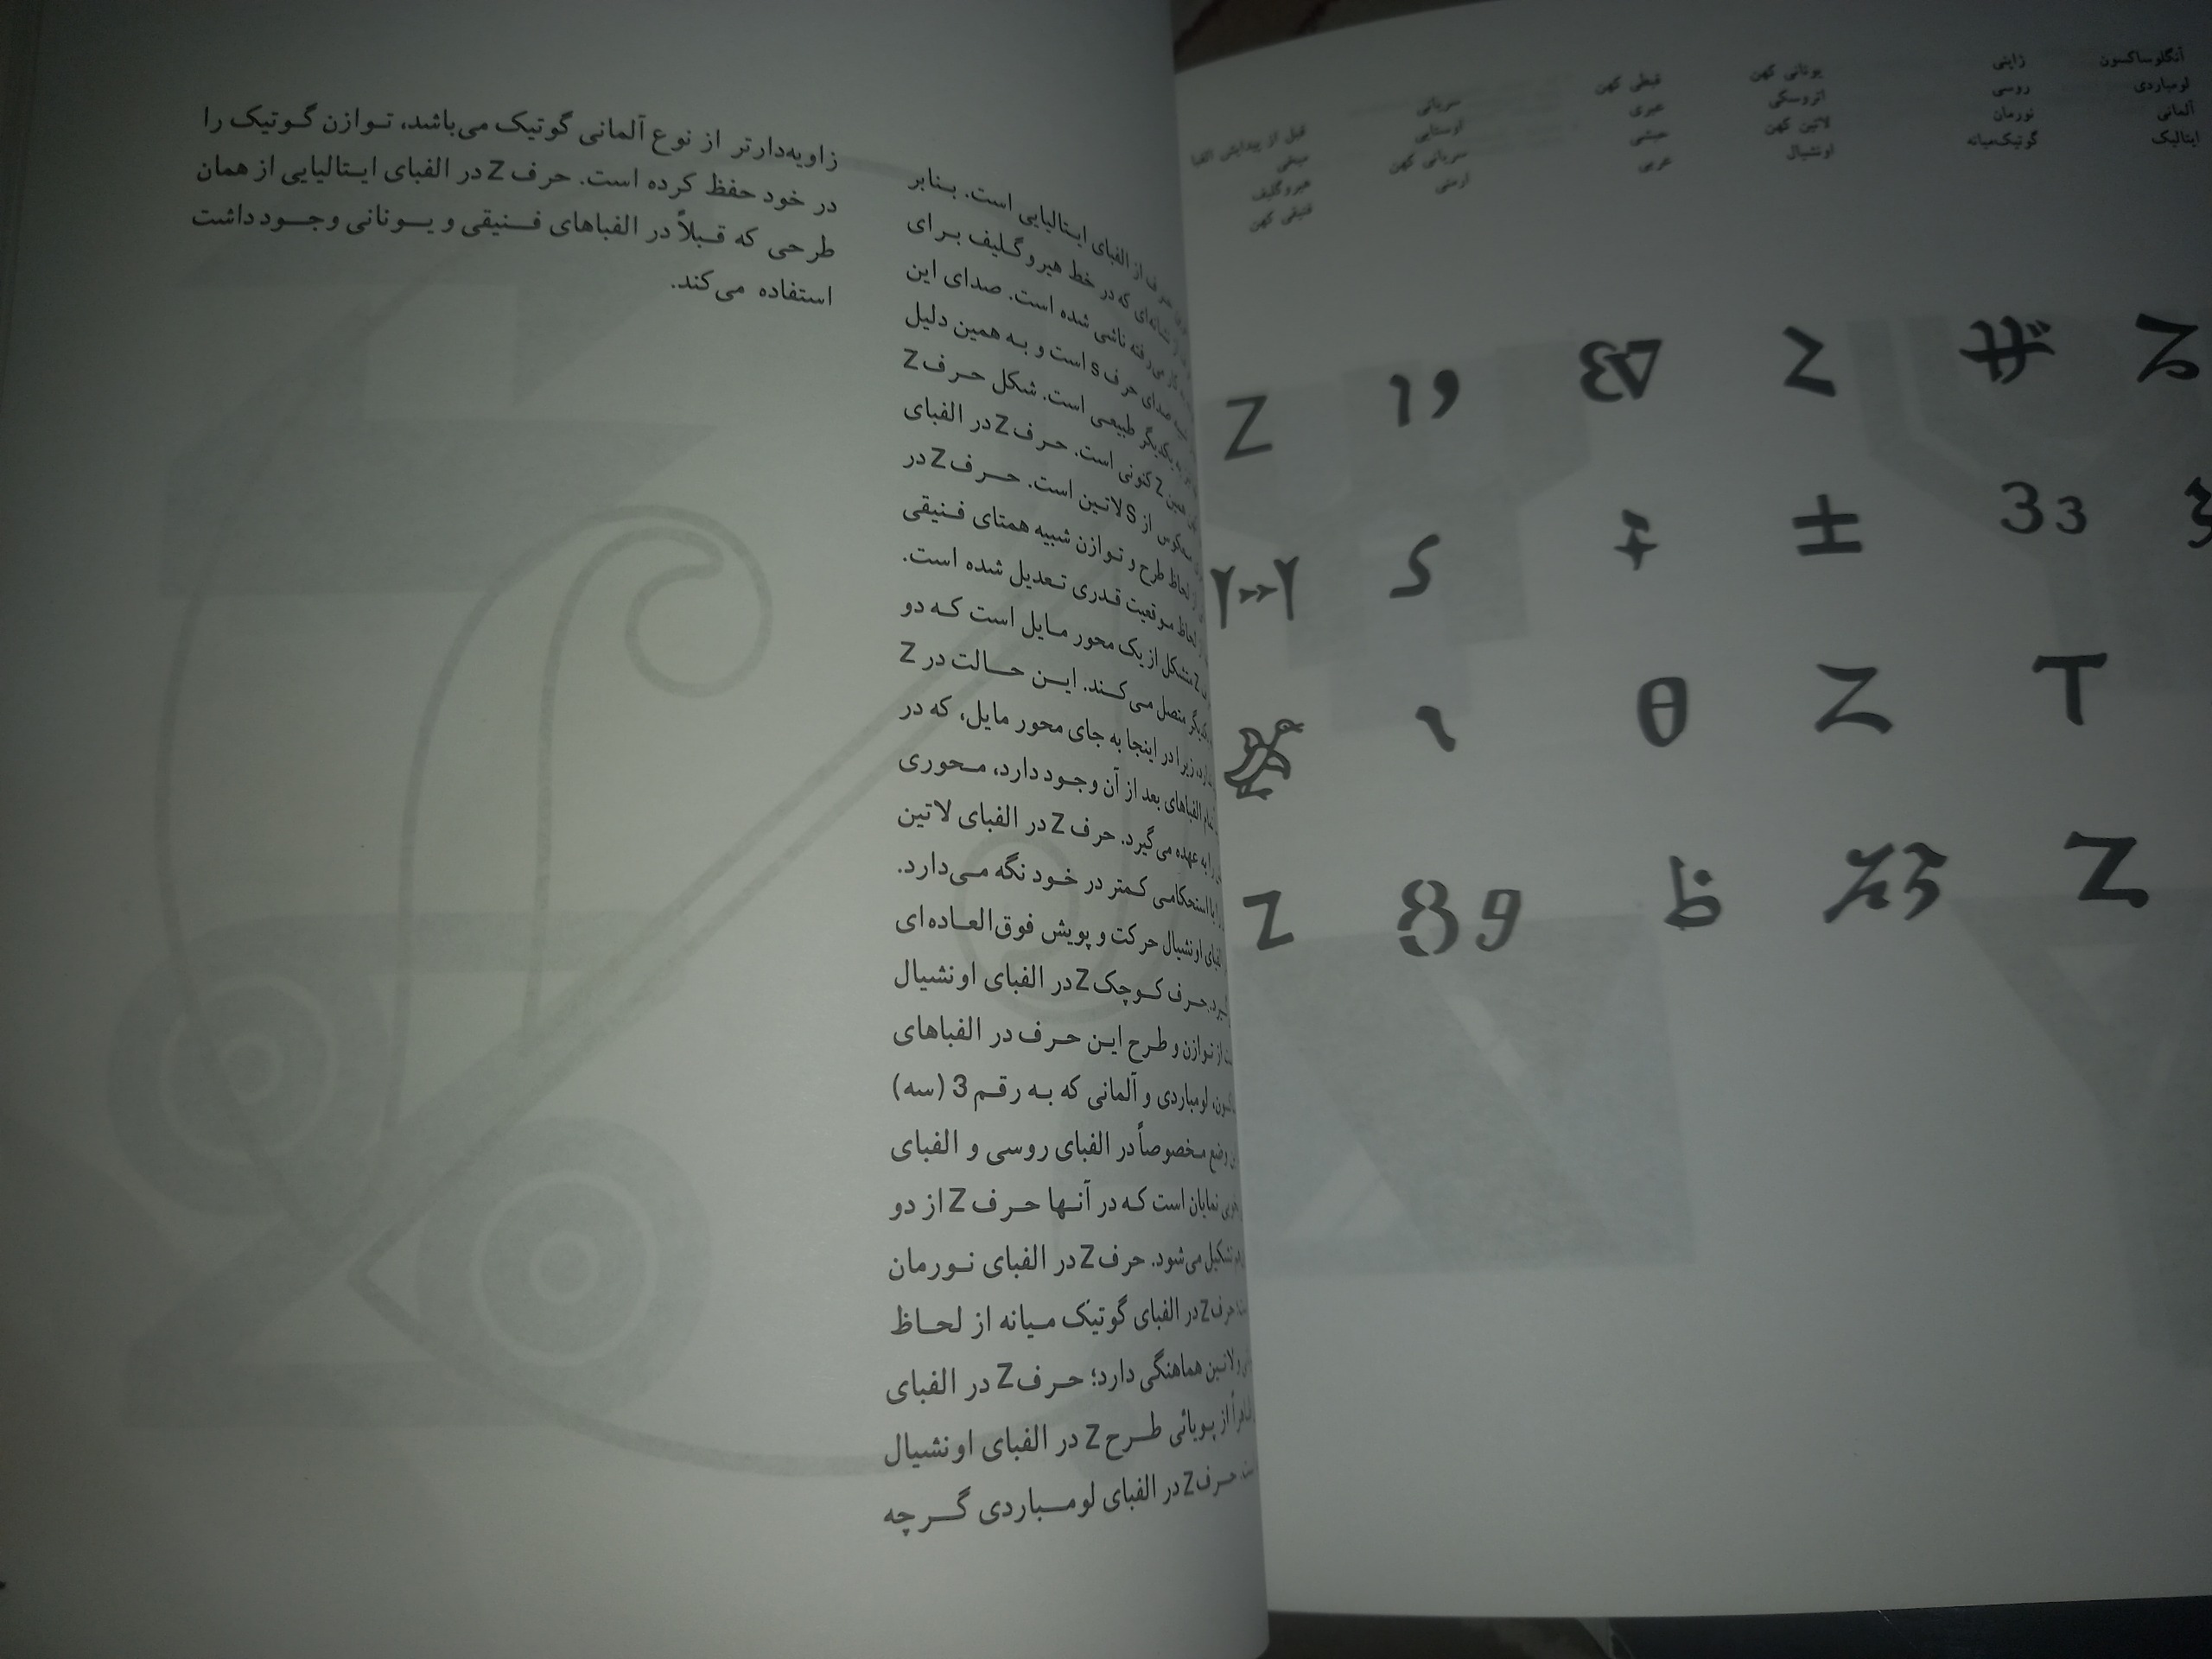 آنگلوساکسون
لومباردی
آلمانی
ایتالیک
ژاپنی
روسی
نورمان
گوتیک‌میانه
یونانی کهن
اتروسکی
لاتین کهن
اونشیال
قبطی کهن
عبری
حبشی
عربی
سریانی
اوستایی
سریانی کهن
ارمنی
قبل از پیدایش الفبا
میخی
هیروگلیف
فنیقی کهن
Z
Z
3 3
T
Z
Z
Z
θ
ظ
Z
Z
حرف از الفبای ایـتالیایی است. بـنابر
نشانه‌ای که در خط هیروگـلیف بـرای
می‌رفته ناشی شده است. صدای این
صدای حرف S است و بـه همین دلیل
یکدیگر طبیعی است. شکل حـرف Z
همین Z کنونی است. حـرف Z در الفبای
معکوس از S لاتـین است. حـــرف Z در
لحاظ طرح و تـوازن شبیه همتای فـنیقی
لحاظ مـوقعیت قـدری تـعدیل شده است.
Z متشکل از یک محور مـایل است کـه دو
یکدیگر متصل مـی‌کــند. ایــن حـــالت در Z
زیرا در اینجا به جای محور مایل، که در
تمام الفباهای بعد از آن وجـود دارد، مـحوری
را به عهده می‌گیرد. حرف Z در الفبای لاتین
را با استحکامی کـمتر در خـود نگه مـی‌دارد.
الفبای اونشیال حرکت و پویش فوق‌العـاده‌ای
حـرف کـوچک Z در الفبای اونشیال
از تـوازن و طـرح ایـن حـرف در الفباهای
لومباردی و آلمانی که بـه رقـم 3 (سه)
وضع مـخصوصاً در الفبای روسی و الفبای
نمایان است کـه در آنـها حـرف Z از دو
تشکیل می‌شود. حرف Z در الفبای نـورمان
حرف Z در الفبای گوتیک مـیانه از لحـاظ
و لاتـین هماهنگی دارد؛ حـرف Z در الفبای
از پـویائی طــرح Z در الفبای اونشیال
حـرف Z در الفبای لومــباردی گــرچه
زاویه‌دارتر از نوع آلمانی گوتیک می‌باشد، تـوازن گـوتیک را
در خود حفظ کرده است. حرف Z در الفبای ایـتالیایی از همان
طرحی که قـبلاً در الفباهای فــنیقی و یــونانی وجــود داشت
استفاده می‌کند.